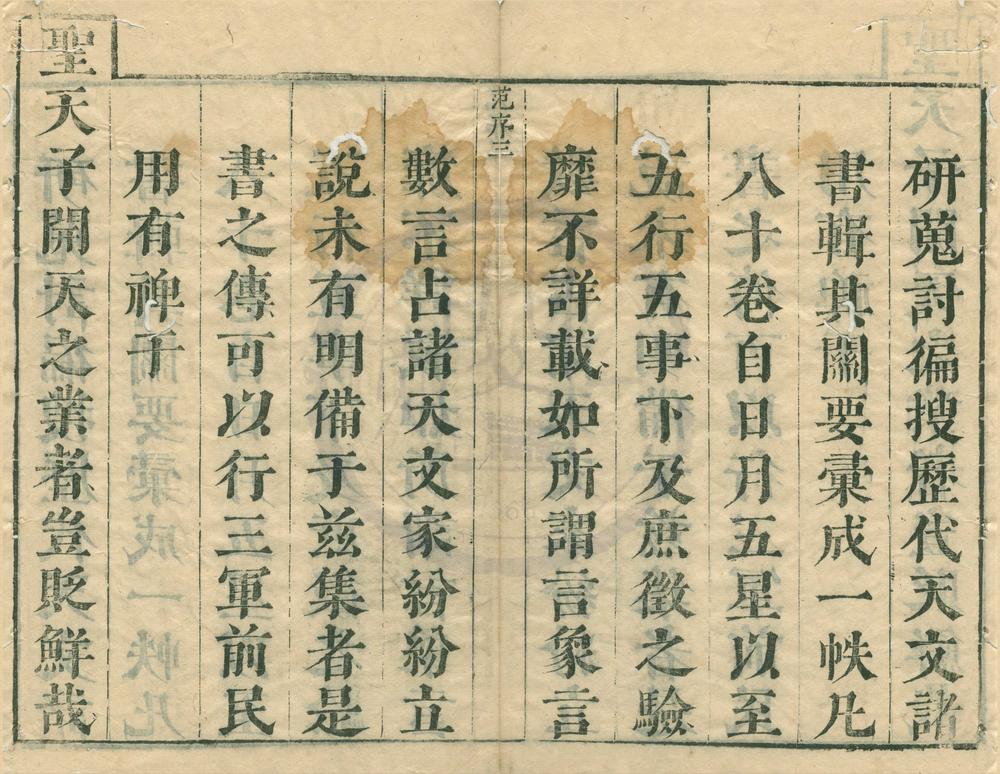 研蒐討徧搜歷代天文諸
書輯其關要彙成一帙凡
八十卷自日月五星以至
五行五事下及庶徵之驗
靡不詳載如所謂言象言
范序三
數言占諸天文家紛紛立
說未有明備于兹集者是
書之傳可以行三軍前民
用有裨于
聖天子開天之業者豈貶鮮哉